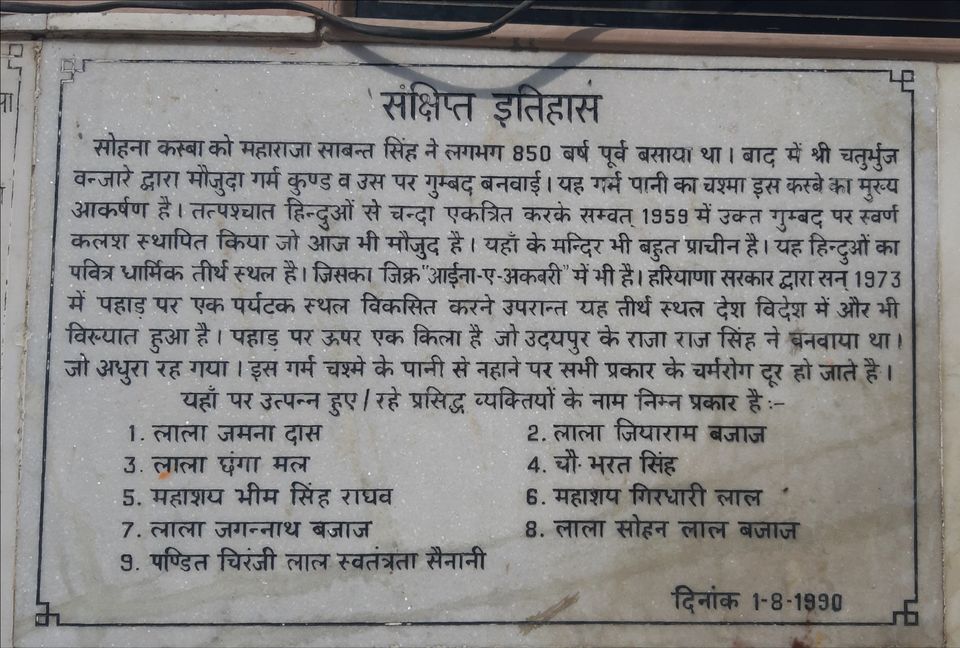 संक्षिप्त इतिहास
सोहना कस्बा को महाराजा साबन्त सिंह ने लगभग 850 बर्ष पूर्व बसाया था। बाद में श्री चतुर्भुज
वन्जारे द्वारा मौजुदा गर्म कुण्ड व उस पर गुम्बद बनवाई। यह गर्म पानी का चश्मा इस कस्बे का मुख्य
आकर्षण है। तत्पश्चात हिन्दुओं से चन्दा एकत्रित करके सम्वत् 1959 में उक्त गुम्बद पर स्वर्ण
कलश स्थापित किया जो आज भी मौजुद है। यहाँ के मन्दिर भी बहुत प्राचीन है। यह हिन्दुओं का
पवित्र धार्मिक तीर्थ स्थल है। जिसका जिक्र "आईना-ए-अकबरी" में भी है। हरियाणा सरकार द्वारा सन् 1973
में पहाड़ पर एक पर्यटक स्थल विकसित करने उपरान्त यह तीर्थ स्थल देश विदेश में और भी
विख्यात हुआ है। पहाड़ पर ऊपर एक किला है जो उदयपुर के राजा राज सिंह ने बनवाया था।
जो अधुरा रह गया। इस गर्म चश्मे के पानी से नहाने पर सभी प्रकार के चर्मरोग दूर हो जाते है।
यहाँ पर उत्पन्न हुए/रहे प्रसिद्ध व्यक्तियों के नाम निम्न प्रकार है:-
1. लाला जमना दास 2. लाला जियाराम बजाज
3. लाला छंगा मल 4. चौ. भरत सिंह
5. महाशय भीम सिंह राघव 6. महाशय गिरधारी लाल
7. लाला जगन्नाथ बजाज 8. लाला सोहन लाल बजाज
9. पण्डित चिरंजी लाल स्वतंत्रता सैनानी
दिनांक 1-8-1990